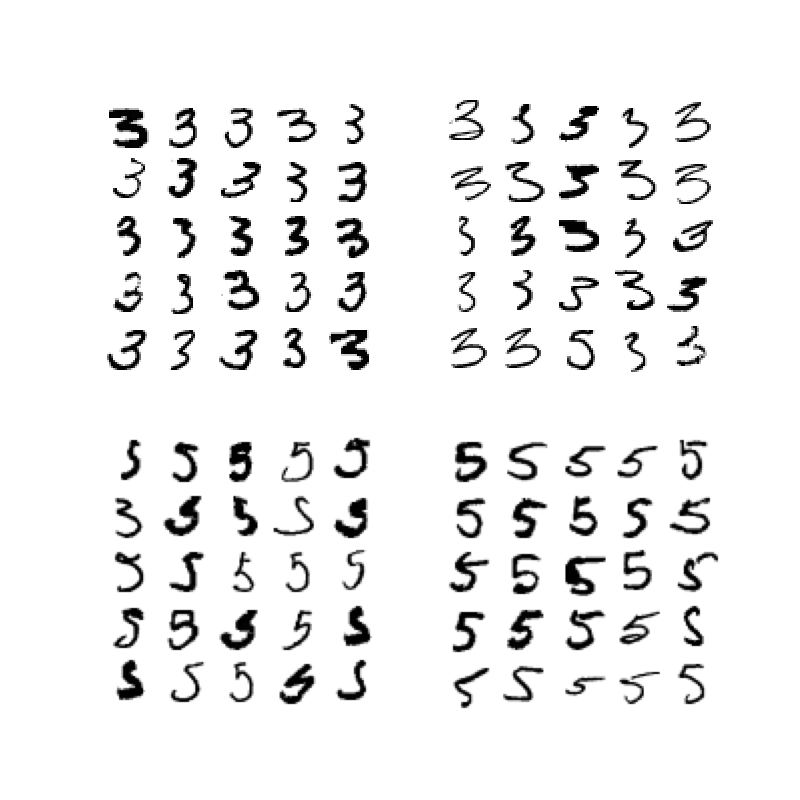 3 3 3 3 3
3 3 3 3 3
3 3 3 3 3
3 3 3 3 3
3 3 3 3 3
3 3 3 3 3
3 3 3 3 3
3 3 3 3 3
3 3 3 3 3
3 3 5 3 3
5 5 5 5 5
3 5 5 5 5
5 5 5 5 5
5 5 5 5 5
5 5 5 5 5
5 5 5 5 5
5 5 5 5 5
5 5 5 5 5
5 5 5 5 5
5 5 5 5 5